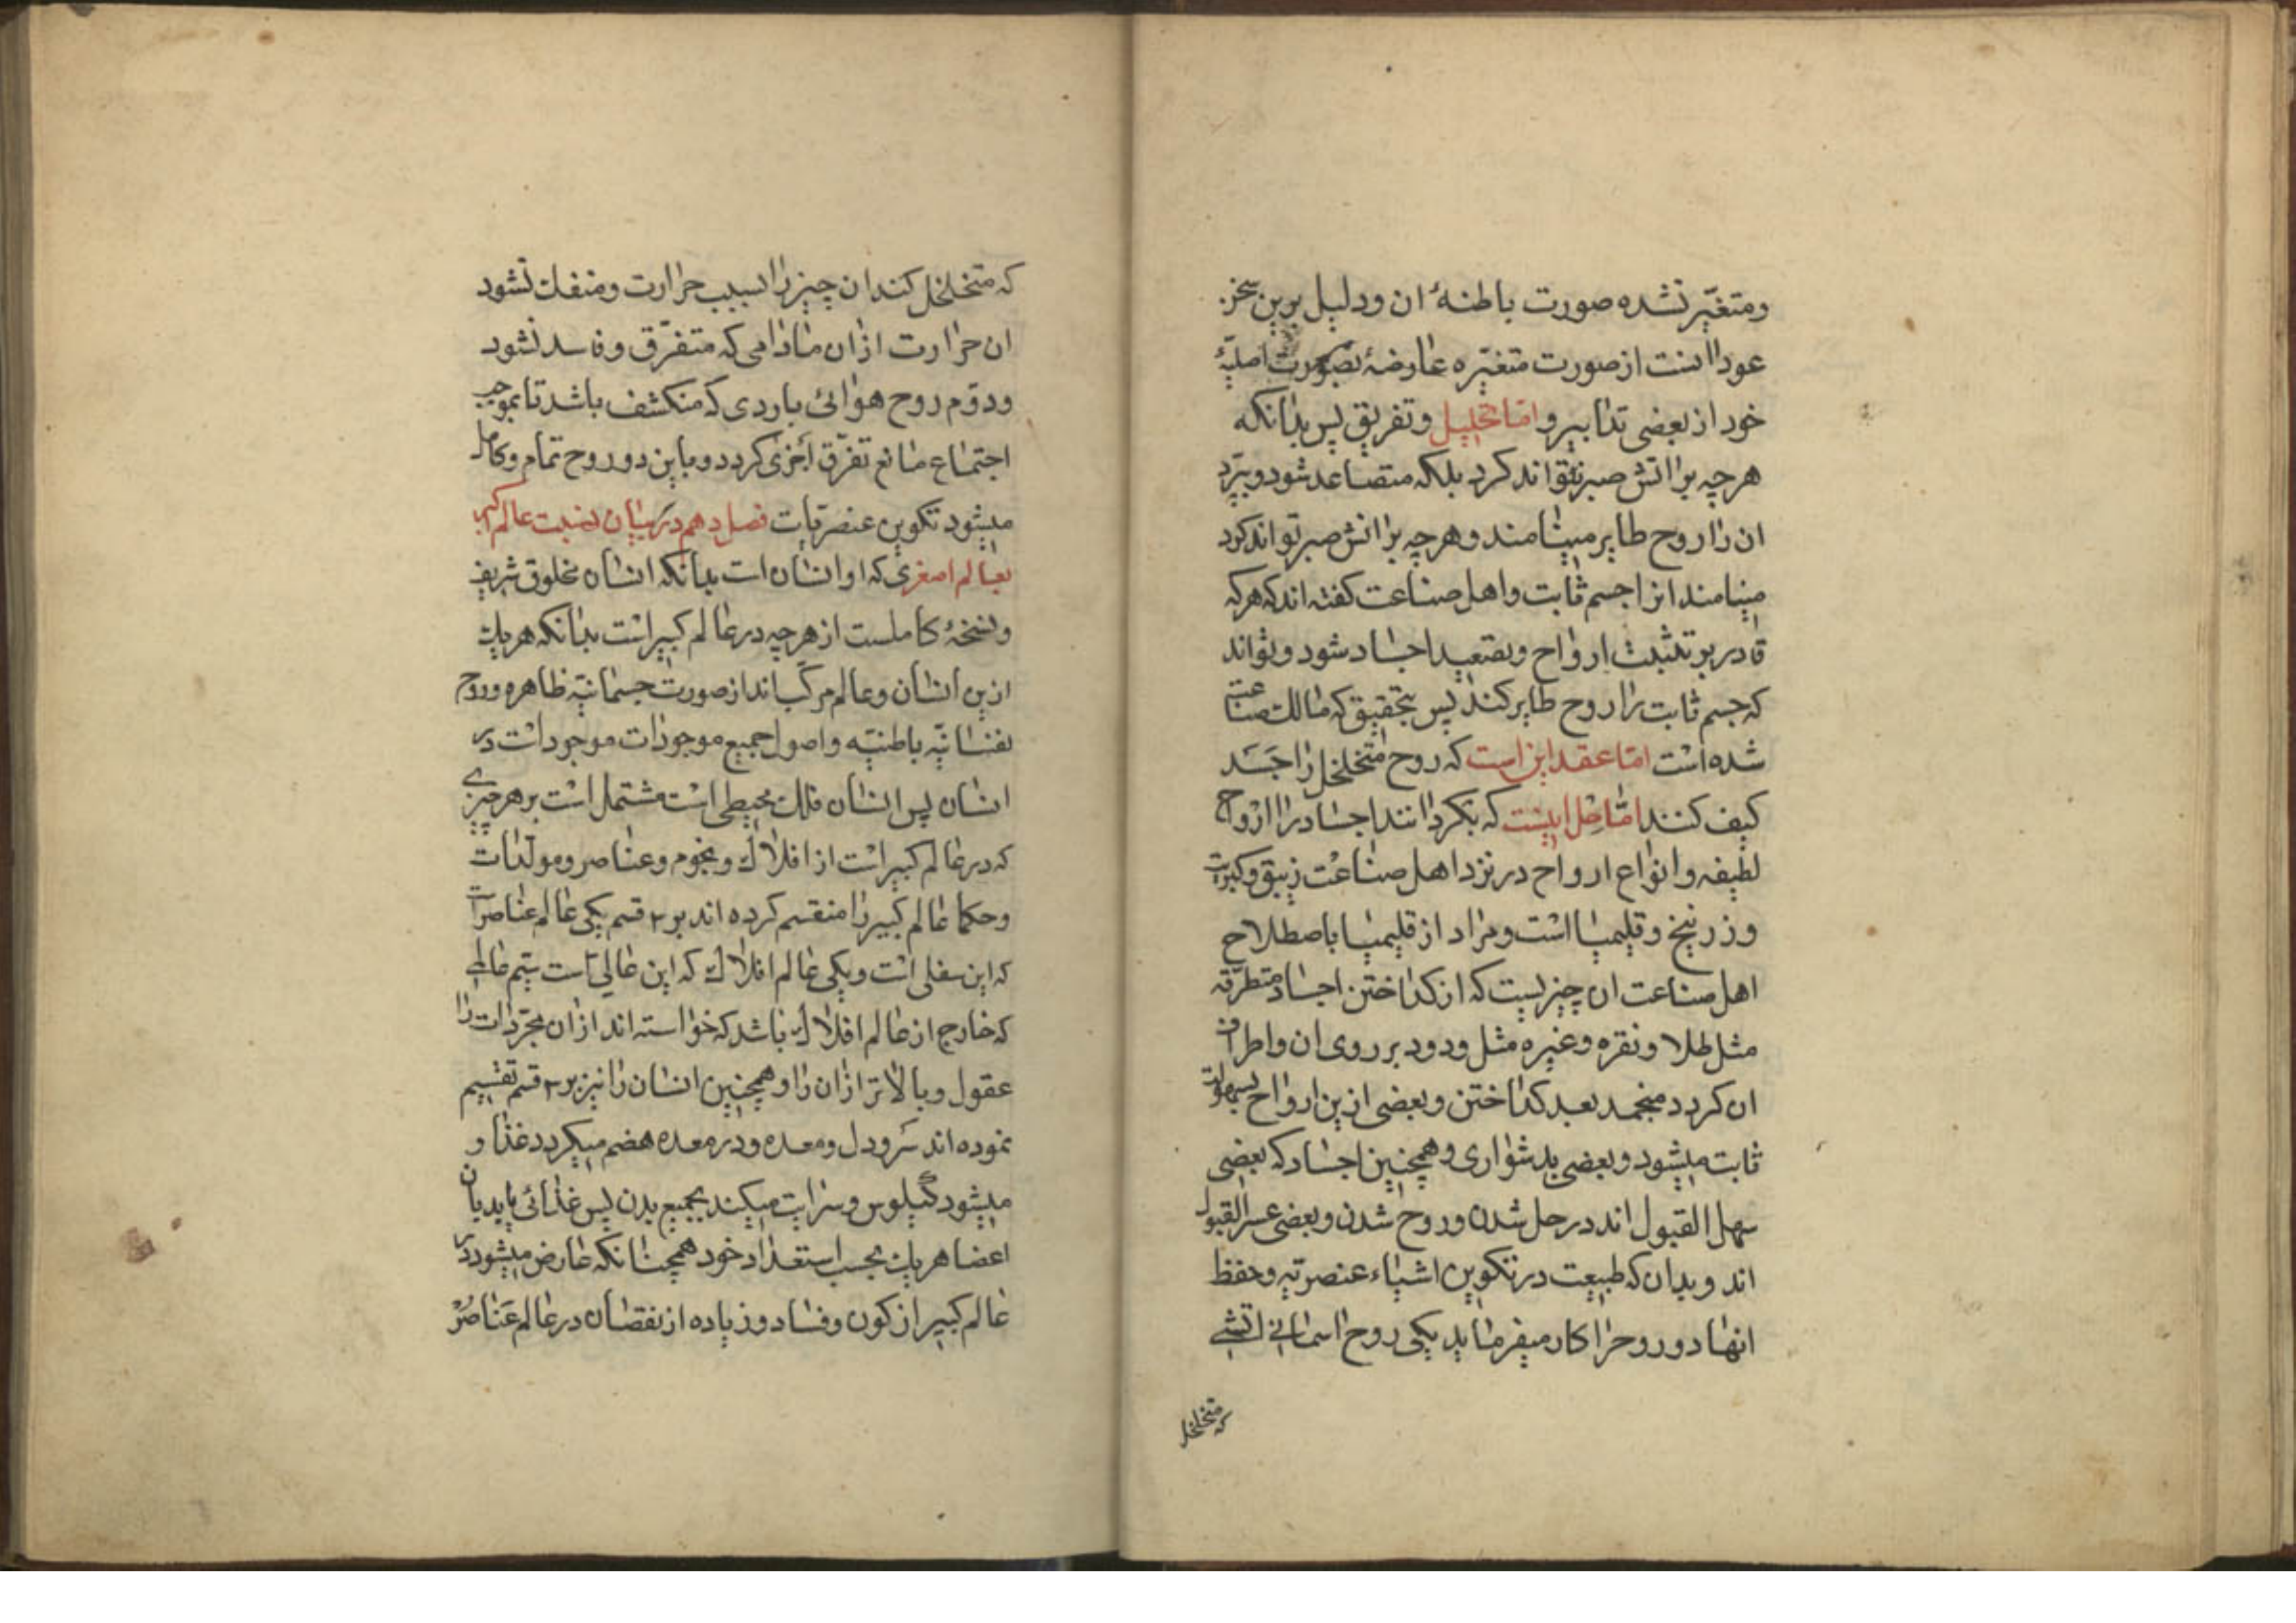 ومتغیّر نشده صورت باطنهٔ ان ودلیل برین سخن
عود انست از صورت متغیّره عارضهٔ بصورت اصلیّهٔ
خود از بعضی تدابیر و امّا تحلیل وتفریق پس بدانکه
هرچه بر اتش صبر نتواند کرد بلکه متصاعد شود و بپرد
ان را روح طایر مینامند و هرچه بر اتش صبر تواند کرد
مینامند انرا جسم ثابت واهل صناعت کفته اند که هرکه
قادر بر تثبیت ارواح وتصعید اجساد شود و تواند
که جسم ثابت را روح طایر کند پس بتحقیق که مالک صناعت
شده است امّا عقد این است که روح متخلخل را جَسَد
کثیف کنند امّا حل اینست که بکردانند اجساد را ارواح
لطیفه وانواع ارواح در نزد اهل صناعت زیبق وکبریت
وزرنیخ وقلیمیا است ومراد از قلیمیا باصطلاح
اهل صناعت ان چیزیست که از کداختن اجساد متطرّقه
مثل طلا ونقره وغیره مثل ودود بر روی ان واطراف
ان کردد منجمد بعد کداختن وبعضی ازین ارواح بسهولت
ثابت میشود وبعضی بدشواری وهمچنین اجساد که بعضی
سهل القبول اند در حل شدن وروح شدن وبعضی عسر القبول
اند وبدان که طبیعت در تکوین اشیاء عنصریّه وحفظ
انها دو روح را کار میفرماید یکی روح اسمانی اتشی
که متخلخل
که متخلخل کند ان چیز را بسبب حرارت ومنفک نشود
ان حرارت از ان مادامی که متفرّق وفاسد نشود
ودوّم روح هوائی باردی که منکشف باشد تا بموجب
اجتماع مانع تفرّق اجزی کردد وباین دو روح تمام وکامل
میشود تکوین عنصریّات فصل دهم در بیان نسبت عالم اکبر
بعالم اصغری که او انسان است بدانکه انسان مخلوق شریف
ونسخهٔ کاملست از هرچه در عالم کبیر است بدانکه هریک
ازین انسان وعالم مرکّب اند از صورت جسمانیّه ظاهره وروح
نفسانیّه باطنیّه واصول جمیع موجودات موجود است در
انسان پس انسان فلک محیطی است مشتمل است بر هر چیزی
که در عالم کبیر است از افلاک ونجوم وعناصر ومولّدات
وحکما عالم کبیر را منقسم کرده اند بر ۳ قسم یکی عالم عناصر است
که این سفلی است ویکی عالم افلاک که این عالی است سیّم عالمی
که خارج از عالم افلاک باشد که خواسته اند از ان مجرّدات را
عقول وبالاتر از ان را وهمچنین انسان را نیز بر ۳ قسم تقسیم
نموده اند سَر ودل ومعده ودر معده هضم میکردد غذا و
میشود کیلوس وسرایت میکند بجمیع بدن پس غذائی یابد بان
اعضا هریک بحسب استعداد خود همچنانکه عارض میشود در
عالم کبیر از کون وفساد وزیاده از نقصان در عالم عناصر